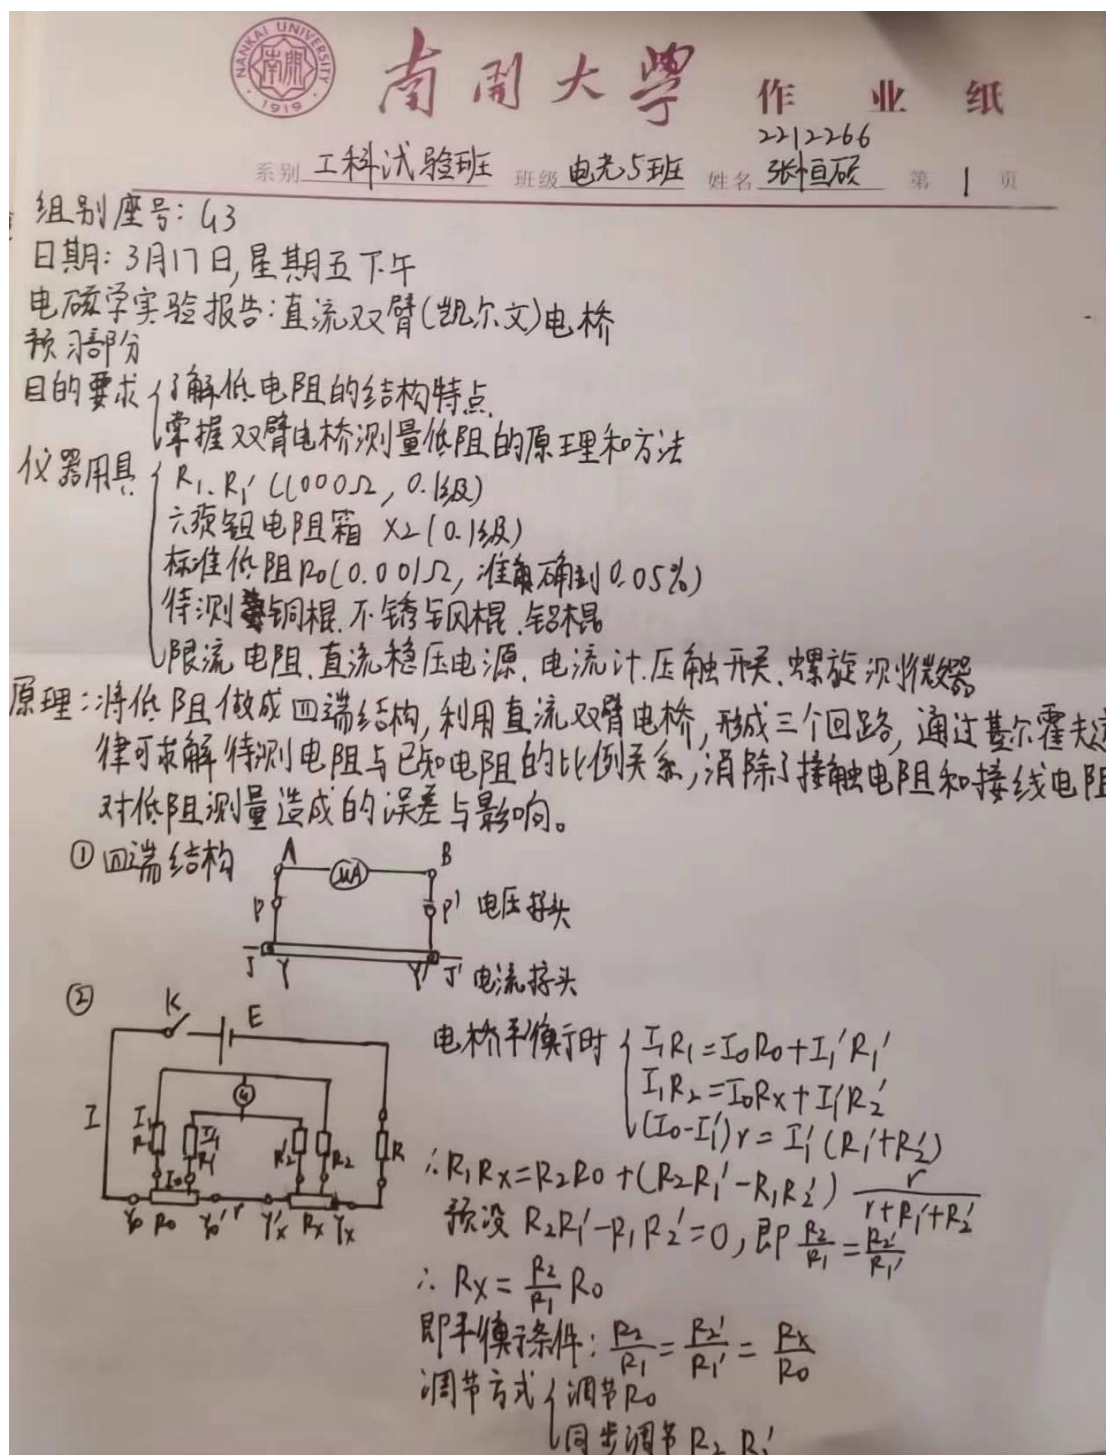 NANKAI UNIVERSITY
南開
1919
南開大學 作业纸
2212266
系别 工科试验班 班级 电光5班 姓名 张恒硕 第 1 页
组别座号: G3
日期: 3月17日,星期五下午
电磁学实验报告:直流双臂(凯尔文)电桥
预习部分
目的要求 { 了解低电阻的结构特点
掌握双臂电桥测量低阻的原理和方法
仪器用具 { R₁、R₁' (1000Ω, 0.1级)
六旋钮电阻箱 ×2 (0.1级)
标准低阻R₀(0.001Ω, 准确到0.05%)
待测铜棍、不锈钢棍、铝棍
限流电阻、直流稳压电源、电流计、压触开关、螺旋测微器
原理:将低阻做成四端结构,利用直流双臂电桥,形成三个回路,通过基尔霍夫定
律可求解待测电阻与已知电阻的比例关系,消除了接触电阻和接线电阻
对低阻测量造成的误差与影响。
① 四端结构
A μA B
P P' 电压接头
J Y Y' J' 电流接头
②
K E
I G
I₁ R₁ I₁' R₁' R₂' R₂ R
I₀
Y₀ R₀ Y₀' r Yx' Rx Yx
电桥平衡时 { I₁R₁=I₀R₀+I₁'R₁'
I₁R₂=I₀Rx+I₁'R₂'
(I₀-I₁')r=I₁'(R₁'+R₂')
∴R₁Rx=R₂R₀+(R₂R₁'-R₁R₂') r/(r+R₁'+R₂')
预设 R₂R₁'-R₁R₂'=0,即 R₂/R₁=R₂'/R₁'
∴ Rx=R₂/R₁ R₀
即平衡条件: R₂/R₁=R₂'/R₁'=Rx/R₀
调节方式 { 调节R₀
同步调节 R₂